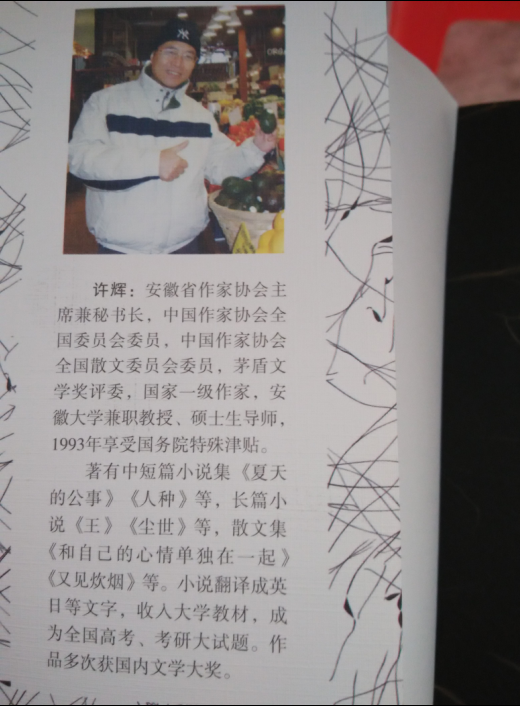 NY
许辉：安徽省作家协会主
席兼秘书长，中国作家协会全
国委员会委员，中国作家协会
全国散文委员会委员，茅盾文
学奖评委，国家一级作家，安
徽大学兼职教授、硕士生导师，
1993年享受国务院特殊津贴。
著有中短篇小说集《夏天
的公事》《人种》等，长篇小
说《王》《尘世》等，散文集
《和自己的心情单独在一起》
《又见炊烟》等。小说翻译成英
日等文字，收入大学教材，成
为全国高考、考研大试题。作
品多次获国内文学大奖。